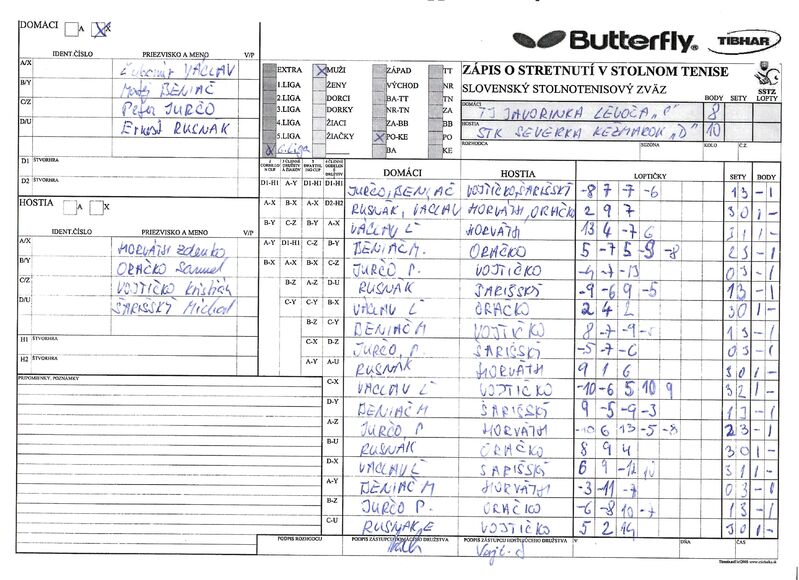 DOMÁCI A X
IDENT.ČÍSLO PRIEZVISKO A MENO V/P
A/X Ľubomír VÁCLAV
B/Y Matúš BENIAČ
C/Z Peter JURČO
D/U Ernest RUSNÁK
D1 ŠTVORHRA
D2 ŠTVORHRA
HOSTIA A X
IDENT.ČÍSLO PRIEZVISKO A MENO V/P
A/X HORVÁTH Zdenko
B/Y ORAČKO Samuel
C/Z VOJTIČKO Kristián
D/U ŠARIŠSKÝ Michal
H1 ŠTVORHRA
H2 ŠTVORHRA
PRIPOMIENKY, POZNÁMKY
EXTRA MUŽI ZÁPAD TT
1.LIGA ŽENY VÝCHOD NR
2.LIGA DORCI BA-TT TN
3.LIGA DORKY NR-TN ZA
4.LIGA ŽIACI ZA-BB BB
5.LIGA ŽIAČKY PO-KE PO
6.Liga BA KE
Butterfly TIBHAR
ZÁPIS O STRETNUTÍ V STOLNOM TENISE
SLOVENSKÝ STOLNOTENISOVÝ ZVÄZ
SSTZ
DOMÁCI BODY SETY LOPTY
TJ JAVORINKA LEVOČA „C" 8
HOSTIA
STK SEVERKA KEŽMAROK „D" 10
ROZHODCA SEZÓNA KOLO Č.Z.
DOMÁCI HOSTIA LOPTIČKY SETY BODY
D1-H1 A-Y D1-H1 D1-H1 JURČO, BENIAČ VOJTIČKO, ŠARIŠSKÝ -8 7 -7 -6 1 3 - 1
A-X B-X A-X D2-H2 RUSNÁK, VÁCLAV HORVÁTH, ORAČKO 2 9 7 3 0 1 -
B-Y C-Z B-Y A-X VÁCLAV Ľ HORVÁTH 13 4 -7 6 3 1 1 -
A-Y D1-H1 C-Z B-Y BENIAČ M. ORAČKO 5 -7 5 -9 -8 2 3 - 1
B-X A-X B-X C-Z JURČO P. VOJTIČKO -4 -7 -13 0 3 - 1
B-Z A-Z D-U RUSNÁK ŠARIŠSKÝ -9 -6 9 -5 1 3 - 1
C-Y C-Y B-X VÁCLAV Ľ ORAČKO 2 4 2 3 0 1 -
B-Z C-Y BENIAČ M VOJTIČKO 8 -7 -9 1 3 - 1
C-X D-Z JURČO, P ŠARIŠSKÝ -5 -7 -6 0 3 - 1
A-Y A-U RUSNÁK HORVÁTH 9 1 6 3 0 1 -
C-X VÁCLAV Ľ VOJTIČKO -10 -6 5 10 9 3 2 1 -
D-Y BENIAČ M ŠARIŠSKÝ 9 -5 -9 -3 1 3 - 1
A-Z JURČO, P HORVÁTH -10 6 13 -5 -8 2 3 - 1
B-U RUSNÁK ORAČKO 8 9 4 3 0 1 -
D-X VÁCLAV Ľ ŠARIŠSKÝ 6 9 -12 10 3 1 1 -
A-Y BENIAČ M HORVÁTH -3 -11 -7 0 3 - 1
B-Z JURČO P. ORAČKO -6 -8 10 -7 1 3 - 1
C-U RUSNÁK, E VOJTIČKO 5 2 14 3 0 1 -
PODPIS ROZHODCU PODPIS ZÁSTUPCU DOMÁCEHO DRUŽSTVA PODPIS ZÁSTUPCU HOSŤUJÚCEHO DRUŽSTVA V DŇA ČAS